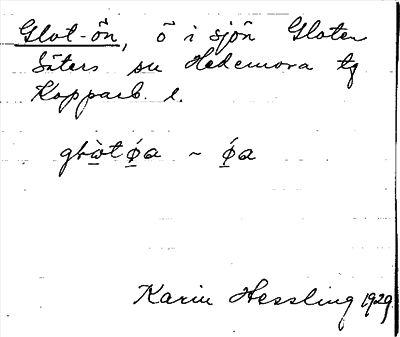 Glot-ön, ö i sjön Gloten
Säters sn Hedemora tg
Kopparb. l.
glòtǿa ~ ǿa
Karin Hessling 1929